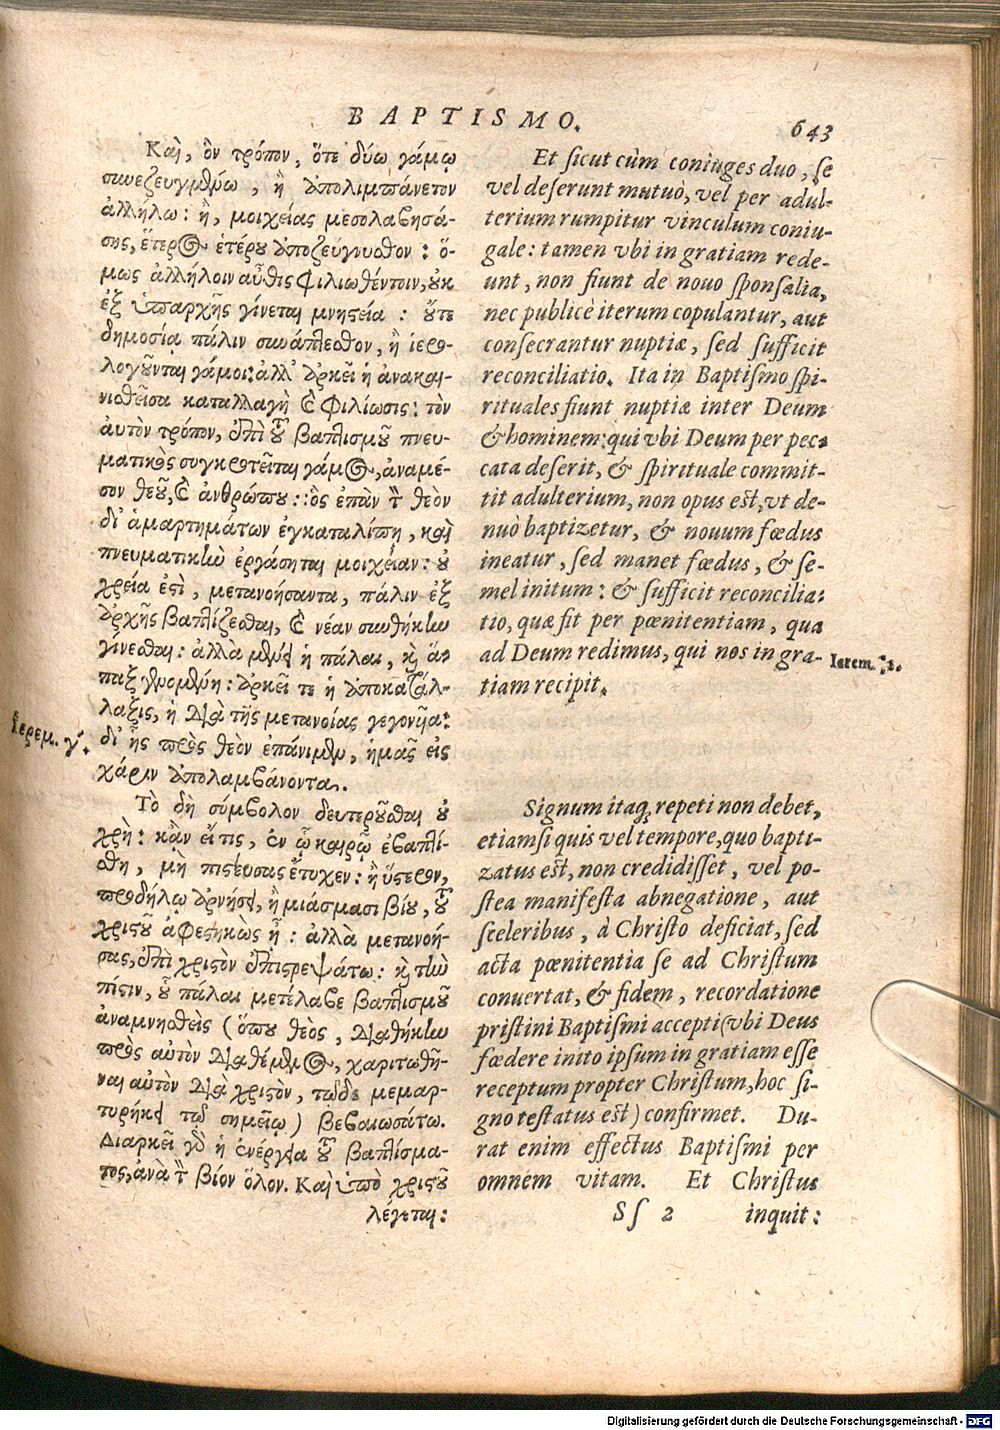 BAPTISMO.
643
Καὶ, ὃν τρόπον, ὅτε δύω γάμῳ
συνεζευγμένω, ἢ ἀπολιμπάνετον
ἀλλήλω: ἢ, μοιχείας μεσολαβησά-
σης, ἕτερος ἑτέρου ἀποζεύγνυσθον: ὅ-
μως ἀλλήλοιν αὖθις φιλιωθέντοιν, οὐκ
ἐξ ὑπαρχῆς γίνεται μνηστεία: οὔτε
δημοσίᾳ πάλιν συνάπτεσθον, ἢ ἱερο-
λογοῦνται γάμοι: ἀλλ' ἀρκεῖ ἡ ἀνακαι-
νισθεῖσα καταλλαγὴ καὶ φιλίωσις: τὸν
αὐτὸν τρόπον, ἐπὶ τοῦ βαπτισμοῦ πνευ-
ματικὸς συγκροτεῖται γάμος, ἀναμέ-
σον θεοῦ, καὶ ἀνθρώπου: ὃς ἐπὰν τὸν θεὸν
δι' ἁμαρτημάτων ἐγκαταλίπῃ, καὶ
πνευματικὴν ἐργάσηται μοιχείαν: οὐ
χρεία ἐστὶ, μετανοήσαντα, πάλιν ἐξ
ἀρχῆς βαπτίζεσθαι, καὶ νέαν συνθήκην
γίνεσθαι: ἀλλὰ μένει ἡ πάλαι, καὶ ἅ-
παξ γενομένη: ἀρκεῖ τε ἡ ἀποκατάλ-
λαξις, ἡ διὰ τῆς μετανοίας γεγονῖα:
δι' ἧς πρὸς θεὸν ἐπάνιμεν, ἡμᾶς εἰς
χάριν ἀπολαμβάνοντα.
Ἱερεμ. γ'.
Τὸ δὴ σύμβολον δευτεροῦσθαι οὐ
χρὴ: κἂν εἴ τις, ἐν ᾧ καιρῷ ἐβαπτί-
σθη, μὴ πιστεύσας ἔτυχεν: ἢ ὕστερον,
προδήλῳ ἀρνήσει, ἢ μιάσμασι βίου, τοῦ
χριστοῦ ἀφεστηκὼς ᾖ: ἀλλὰ μετανοή-
σας, ἐπὶ χριστὸν ἐπιστρεψάτω: καὶ τὴν
πίστιν, οὗ πάλαι μετέλαβε βαπτισμοῦ
ἀναμνησθεὶς (ὅπου θεὸς, διαθήκην
πρὸς αὐτὸν διαθέμενος, χαριτωθῆ-
ναι αὐτὸν διὰ χριστὸν, τῷδε μεμαρ-
τύρηκε τῷ σημείῳ) βεβαιωσάτω.
Διαρκεῖ γὰρ ἡ ἐνέργεια τοῦ βαπτίσμα-
τος, ἀνὰ τὸν βίον ὅλον. Καὶ ὑπὸ χριστοῦ
λέγεται:
Et sicut cùm coniuges duo, se
vel deserunt mutuò, vel per adul-
terium rumpitur vinculum coniu-
gale: tamen vbi in gratiam rede-
unt, non fiunt de nouo sponsalia,
nec publicè iterum copulantur, aut
consecrantur nuptiæ, sed sufficit
reconciliatio. Ita in Baptismo spi-
rituales fiunt nuptiæ inter Deum
& hominem: qui vbi Deum per pec-
cata deserit, & spirituale commit-
tit adulterium, non opus est, vt de-
nuò baptizetur, & nouum fœdus
ineatur, sed manet fœdus, & se-
mel initum: & sufficit reconcilia-
tio, quæ fit per pœnitentiam, qua
ad Deum redimus, qui nos in gra-
tiam recipit.
Ierem. 3.
Signum itaq; repeti non debet,
etiamsi quis vel tempore, quo bapti-
zatus est, non credidisset, vel po-
stea manifesta abnegatione, aut
sceleribus, à Christo deficiat, sed
acta pœnitentia se ad Christum
conuertat, & fidem, recordatione
pristini Baptismi accepti (vbi Deus
fœdere inito ipsum in gratiam esse
receptum propter Christum, hoc si-
gno testatus est) confirmet. Du-
rat enim effectus Baptismi per
omnem vitam. Et Christus
Sſ 2 inquit:
Digitalisierung gefördert durch die Deutsche Forschungsgemeinschaft - DFG